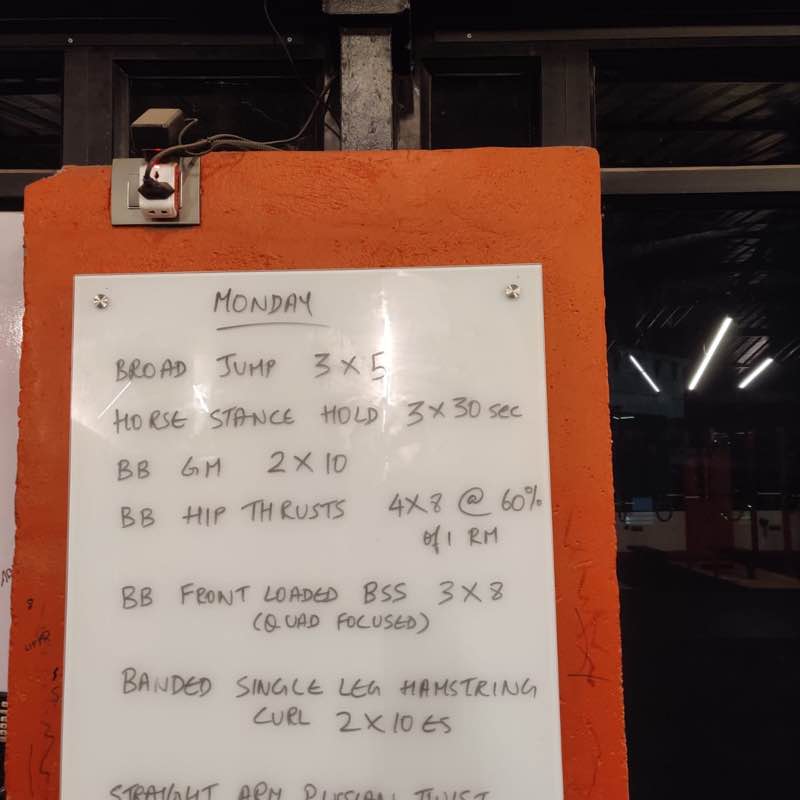 MONDAY
BROAD JUMP 3 X 5
HORSE STANCE HOLD 3 X 30 sec
BB GM 2 X 10
BB HIP THRUSTS 4X8 @ 60%
of 1 RM
BB FRONT LOADED BSS 3 X 8
(QUAD FOCUSED)
BANDED SINGLE LEG HAMSTRING
CURL 2 X 10 ES
STRAIGHT ARM RUSSIAN TWIST